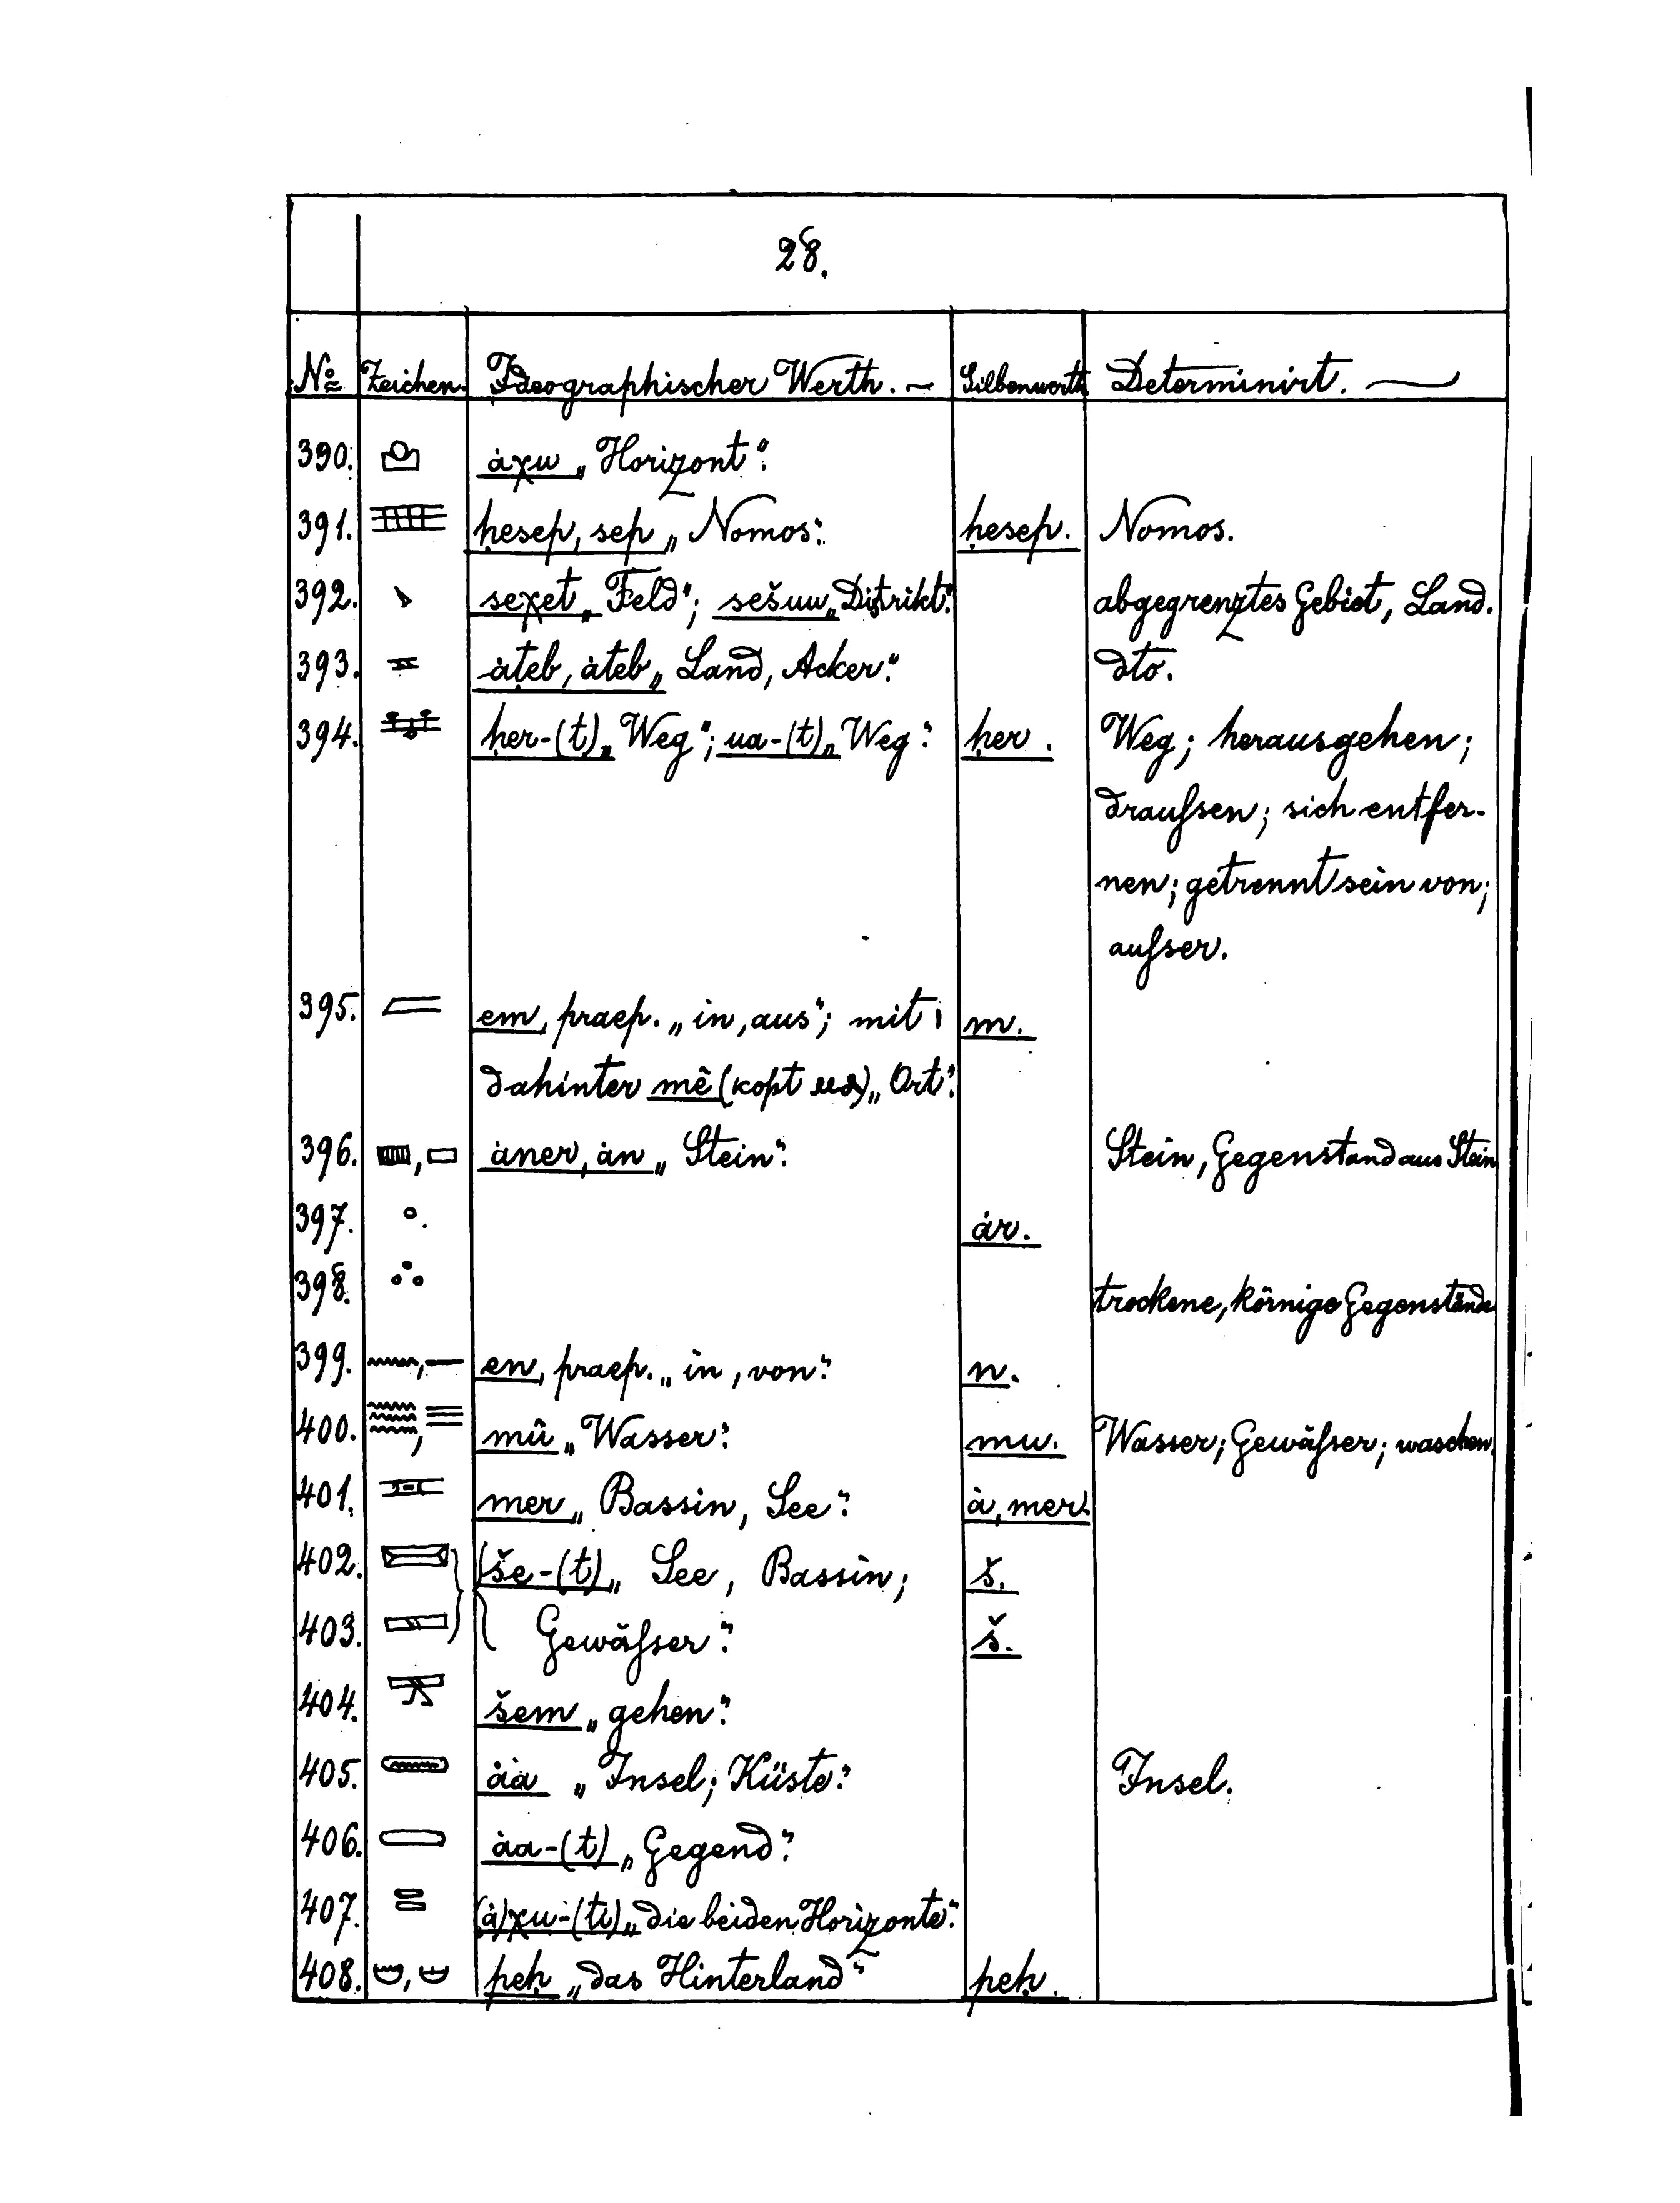 28.
№ Zeichen. Ideographischer Werth. Silbenwerth Determinirt.
390. ȧχu „Horizont“.
391. ḥesep, sep „Nomos“. ḥesep. Nomos.
392. seχet „Feld“; sešuu „Distrikt“. abgegrenztes Gebiet, Land.
393. ȧṭeb, ȧteb „Land, Acker“. dto.
394. ḥer-(t) „Weg“; ua-(t) „Weg“. ḥer. Weg; herausgehen;
draußen; sich entfer-
nen; getrennt sein von;
außer.
395. em, praep. „in, aus“; mit ı m.
dahinter mê (kopt ⲙⲁ) „Ort“.
396. , ȧner, ȧn „Stein“. Stein, Gegenstand aus Stein
397. ȧr.
398. trockene, körnige Gegenstände
399. , en, praep. „in, von“. n.
400. , mû „Wasser“. mu. Wasser; Gewäßer; waschen.
401. mer „Bassin, See“. ȧ, mer.
402. še-(t) „See, Bassin; š.
403. Gewäßer“. š.
404. šem „gehen“.
405. ȧȧ „Insel; Küste“. Insel.
406. ȧa-(t) „Gegend“.
407. (ȧ)χu-(ti) „die beiden Horizonte“.
408. , peḥ „das Hinterland“ peḥ.